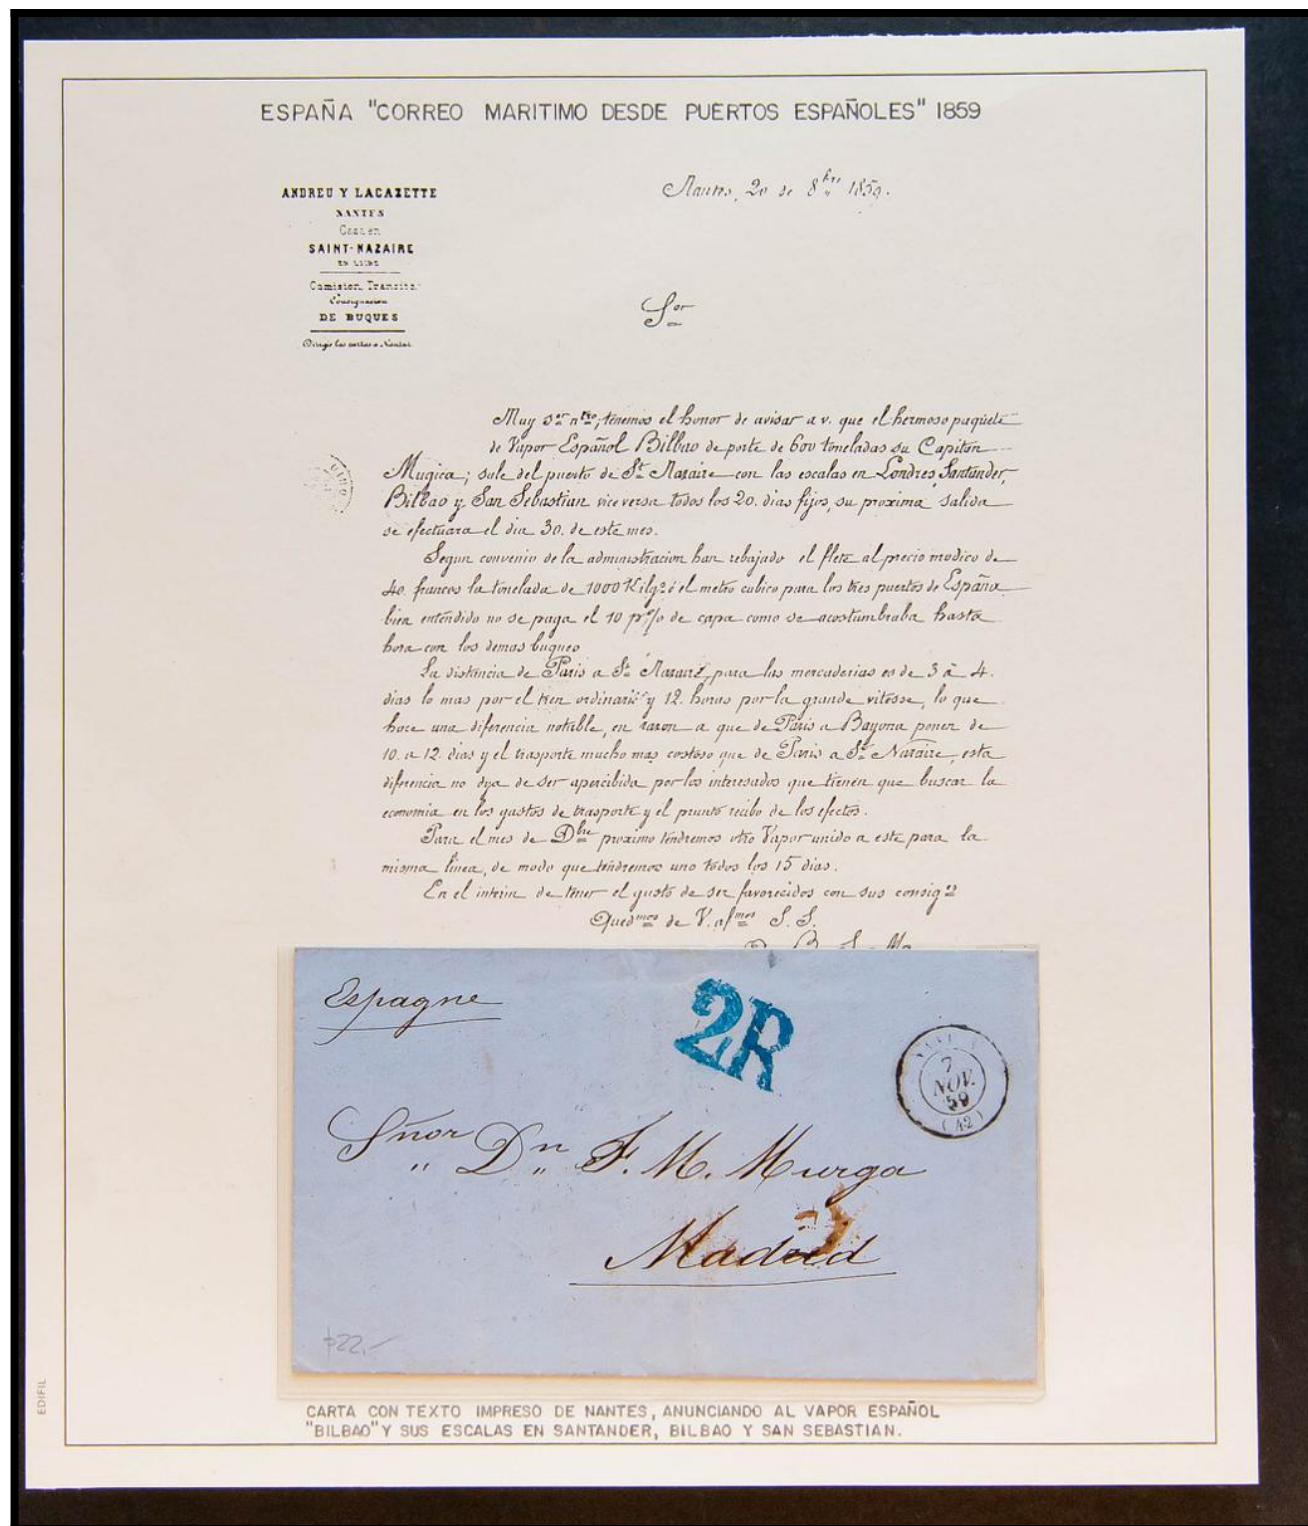 ESPAÑA "CORREO MARITIMO DESDE PUERTOS ESPAÑOLES" 1859
ANDREU Y LACAZETTE
NANTES
Casa en
SAINT-NAZAIRE
Comision, Transito
Consignacion
DE BUQUES
Dirigir las cartas a Nantes
Nantes, 20 de 8bre 1859.
Sor
Muy Sor ntro; tenemos el honor de avisar a v. que el hermoso paquete
de Vapor Español Bilbao de porte de 600 toneladas su Capitan
Mugica; sale del puerto de St Nazaire con las escalas en Londres, Santander,
Bilbao y San Sebastian vice versa todos los 20. dias fijos, su proxima salida
se efectuara el dia 30. de este mes.
Segun convenio de la administracion han rebajado el flete al precio modico de
40. francos la tonelada de 1000 Kilgs ó el metro cubico para los tres puertos de España
bien entendido no se paga el 10 p% de capa como se acostumbraba hasta
hora con los demas buques
La distancia de Paris a St Nazaire, para las mercaderias es de 3 à 4.
dias lo mas por el tren ordinario y 12. horas por la grande vitesse, lo que
hace una diferencia notable, en razon a que de Paris a Bayona ponen de
10. a 12. dias y el trasporte mucho mas costoso que de Paris a St Nazaire, esta
diferencia no deja de ser apercibida por los interesados que tienen que buscar la
economia en los gastos de trasporte y el pronto recibo de los efectos.
Para el mes de Dbre proximo tendremos otro Vapor unido a este para la
misma linea, de modo que tendremos uno todos los 15 dias.
En el interin de tener el gusto de ser favorecidos con sus consigs
Quedmos de V. afmos S. S.
Espagne
2R
7
NOV.
59
(42)
Sñor Dn F. M. Murga
Madrid
p22.-
EDIFIL
CARTA CON TEXTO IMPRESO DE NANTES, ANUNCIANDO AL VAPOR ESPAÑOL
"BILBAO" Y SUS ESCALAS EN SANTANDER, BILBAO Y SAN SEBASTIAN.